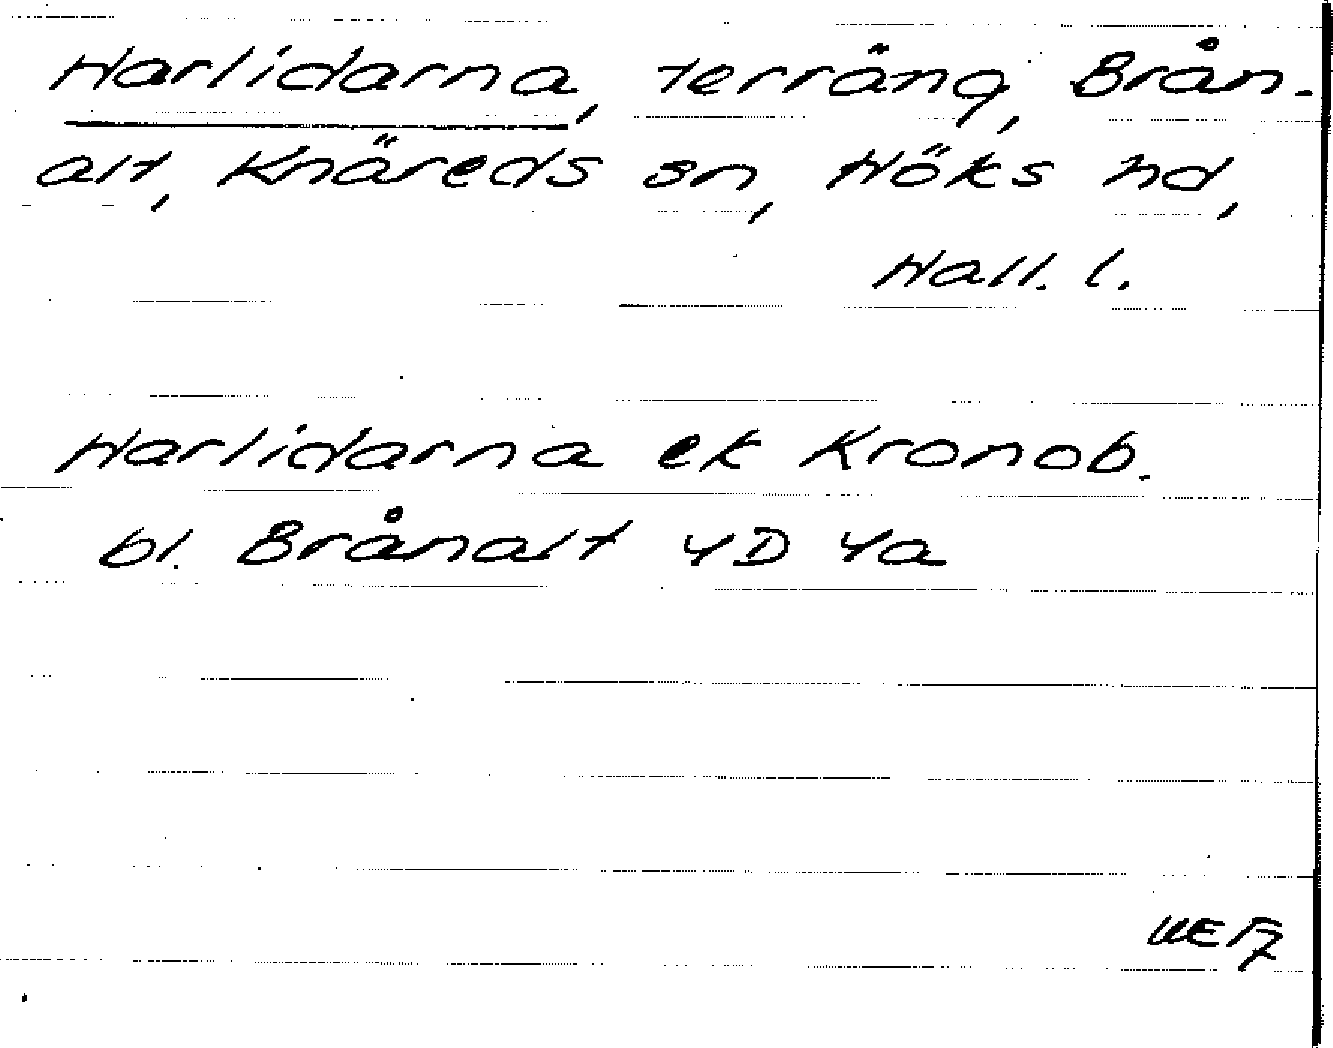 Harlidarna, terräng, Brån-
alt, Knäreds sn, Höks hd,
Hall. l.
Harlidarna ek Kronob.
bl. Brånalt 4D 4a